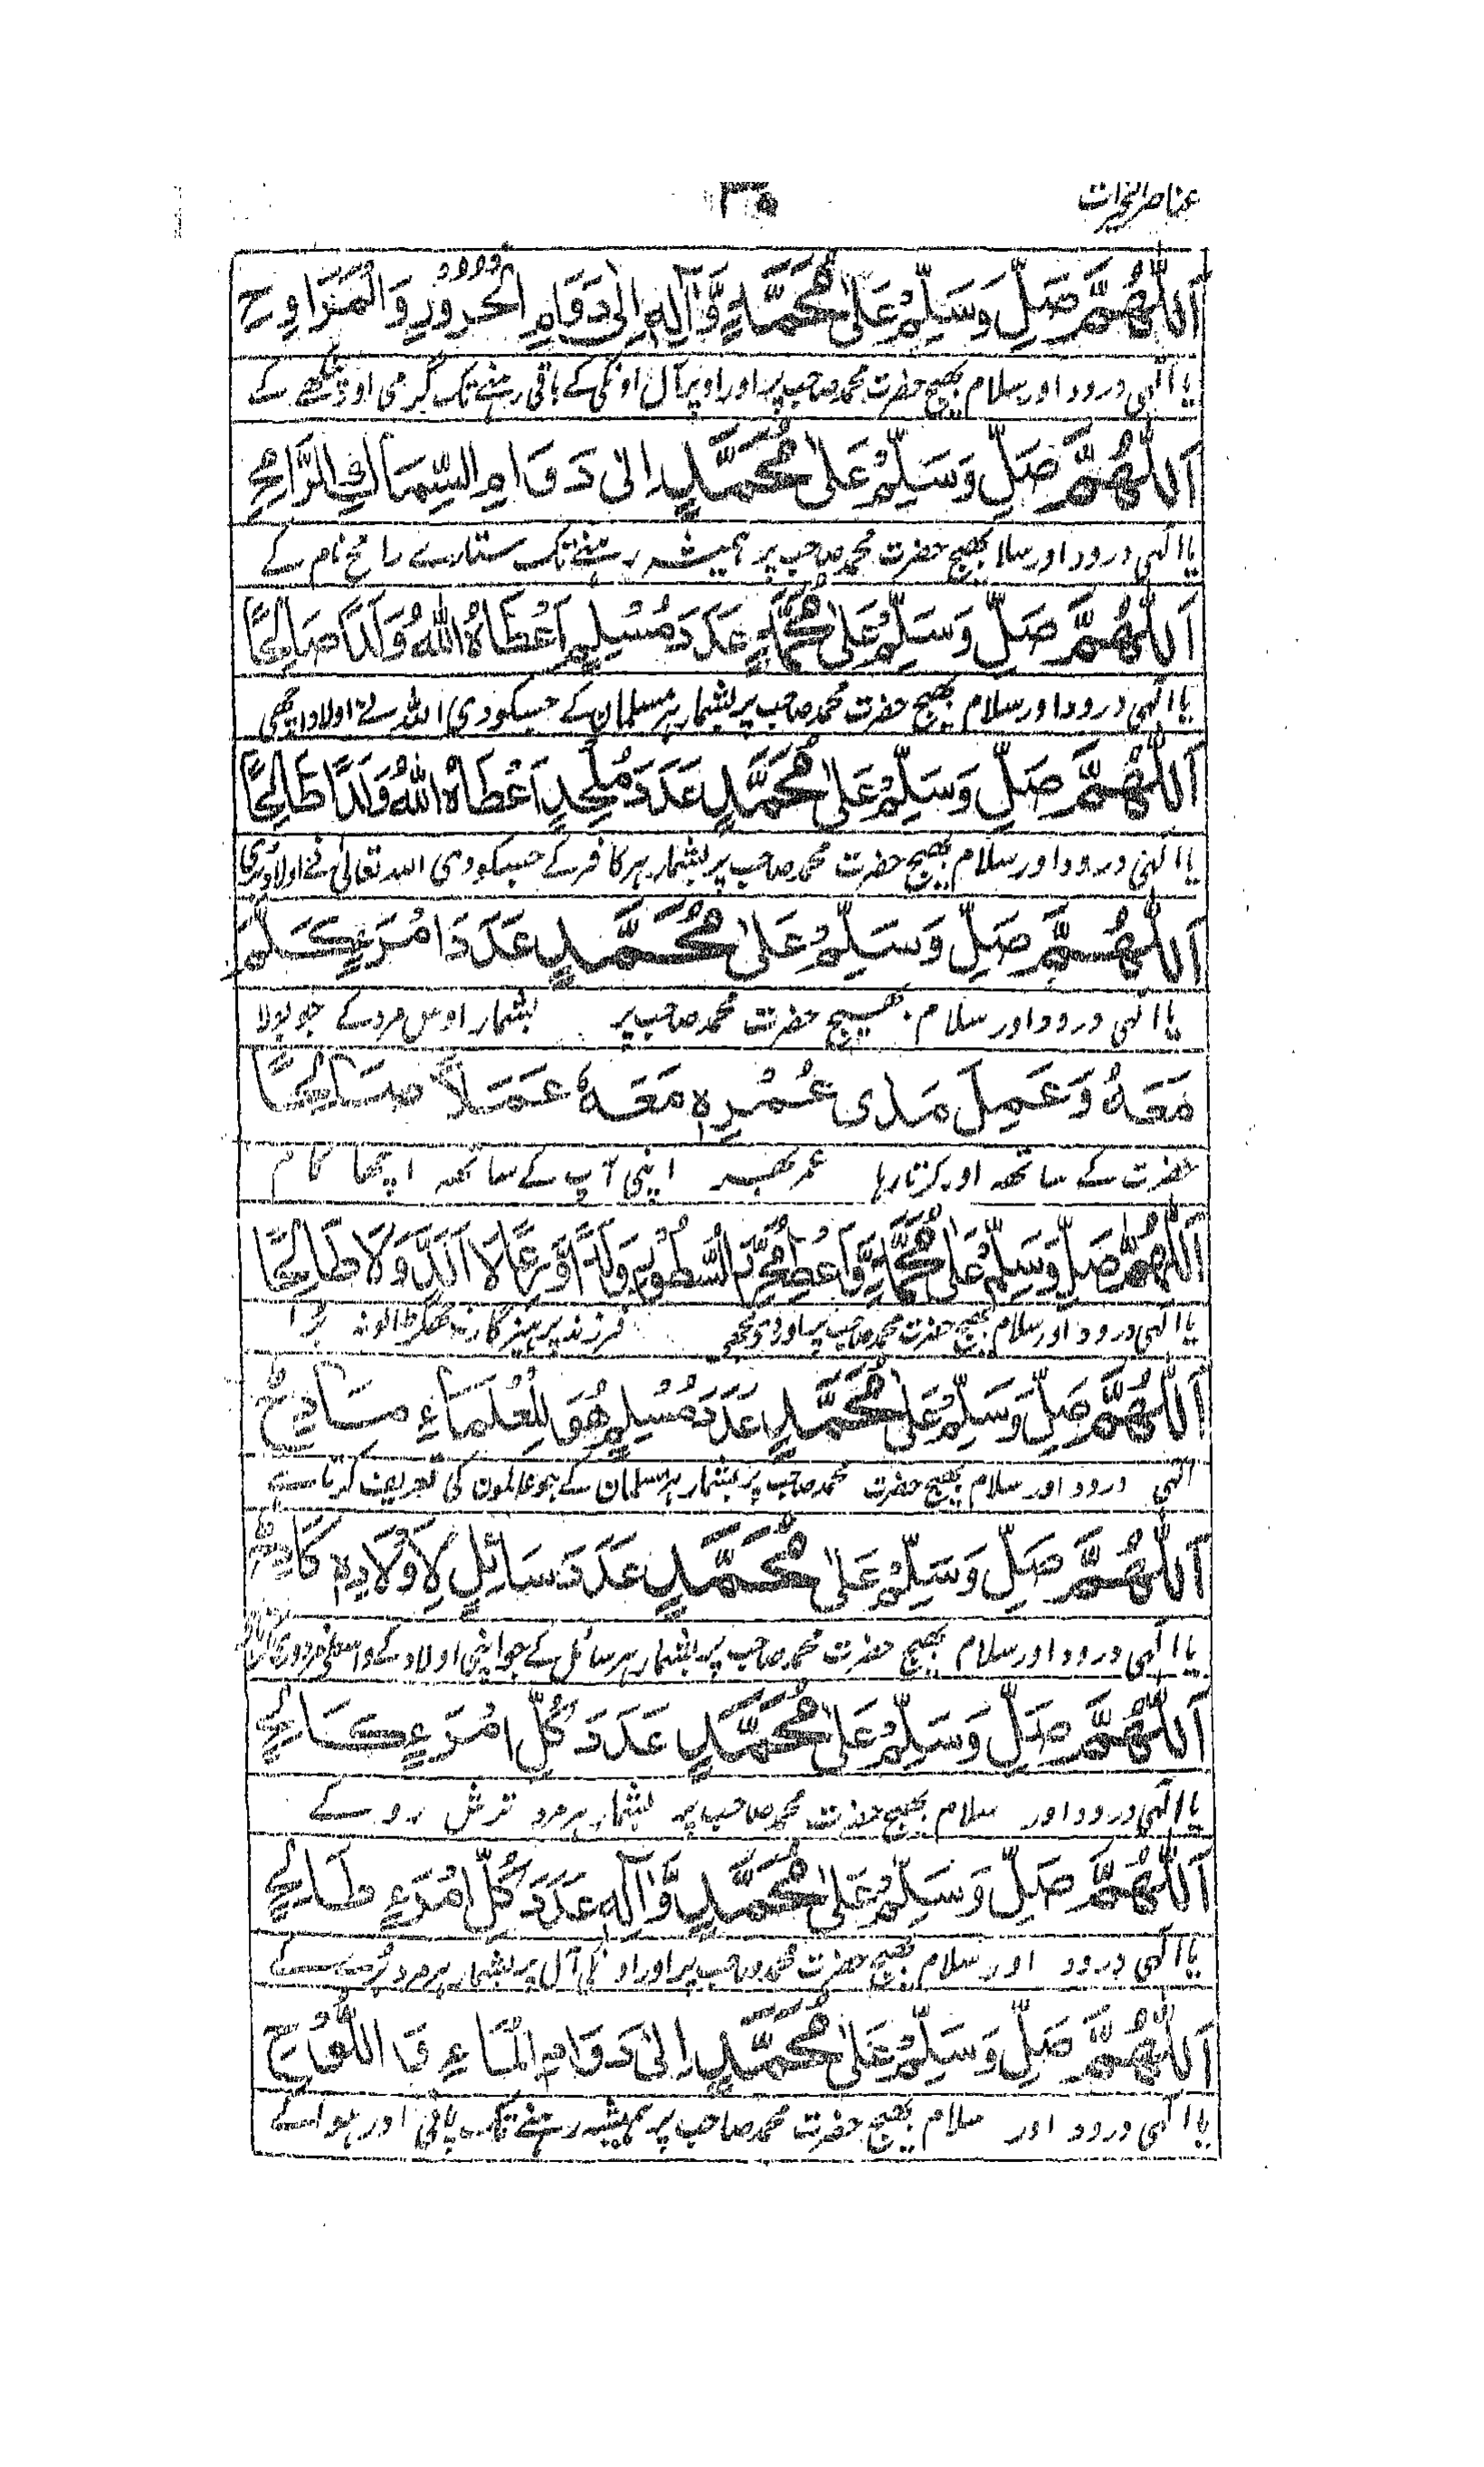 عناصر الخیرات
۳۵
اَللّٰهُمَّ صَلِّ وَسَلِّمْ عَلٰى مُحَمَّدٍ وَّاٰلِهٖ اِلٰى دَوَامِ الْحُرُوْرِ وَالْمَرَاوِحِ
یا الٰہی درود اور سلام بھیج حضرت محمد صاحب پر اور اوپر آل اونکی کے باقی رہنے تک گرمی اور پنکھے کے
اَللّٰهُمَّ صَلِّ وَسَلِّمْ عَلٰى مُحَمَّدٍ اِلٰى دَوَامِ السِّمَاكِ الرَّامِحِ
یا الٰہی درود اور سلام بھیج حضرت محمد صاحب پر ہمیشہ رہنے تک ستارے رامح نام کے
اَللّٰهُمَّ صَلِّ وَسَلِّمْ عَلٰى مُحَمَّدٍ عَدَدَ مُسْلِمٍ اَعْطَاهُ اللهُ وَلَدًا صَالِحًا
یا الٰہی درود اور سلام بھیج حضرت محمد صاحب پر بشمار ہر مسلمان کے جسکو دی اللہ نے اولاد اچھی
اَللّٰهُمَّ صَلِّ وَسَلِّمْ عَلٰى مُحَمَّدٍ عَدَدَ مُلْحِدٍ اَعْطَاهُ اللهُ وَلَدًا طَالِحًا
یا الٰہی درود اور سلام بھیج حضرت محمد صاحب پر بشمار ہر کافر کے جسکو دی اللہ تعالیٰ نے اولاد بُری
اَللّٰهُمَّ صَلِّ وَسَلِّمْ عَلٰى مُحَمَّدٍ عَدَدَ امْرَءٍ كَلَّمَ
یا الٰہی درود اور سلام بھیج حضرت محمد صاحب پر بشمار اوس مرد کے جو بولا
مَعَهٗ وَعَمِلَ مَدٰى عُمْرِهٖ مَعَهٗ عَمَلًا صَالِحًا
حضرت کے ساتھ اور کرتا رہا عمر بھر اپنی آپ کے ساتھ اچھا کام
اَللّٰهُمَّ صَلِّ وَسَلِّمْ عَلٰى مُحَمَّدٍ وَّاَعْطِ مُحَرِّرَ السُّطُوْرِ وَلَدًا وَرِعًا لَا اَلَدَّ وَلَا طَالِحًا
یا الٰہی درود اور سلام بھیج حضرت محمد صاحب پر اور دی مجھے فرزند پرہیزگار نہ جھگڑالو نہ بُرا
اَللّٰهُمَّ صَلِّ وَسَلِّمْ عَلٰى مُحَمَّدٍ عَدَدَ مُسْلِمٍ هُوَ لِلْعُلَمَاءِ مَادِحٌ
الٰہی درود اور سلام بھیج حضرت محمد صاحب پر بشمار ہر مسلمان کے جو عالمون کی تعریف کرتا ہے
اَللّٰهُمَّ صَلِّ وَسَلِّمْ عَلٰى مُحَمَّدٍ عَدَدَ سَائِلٍ لِاَوْلَادِهٖ كَادِحٌ
یا الٰہی درود اور سلام بھیج حضرت محمد صاحب پر بشمار ہر سائل کے جو اپنی اولاد کے واسطے مزدوری
اَللّٰهُمَّ صَلِّ وَسَلِّمْ عَلٰى مُحَمَّدٍ عَدَدَ كُلِّ امْرَءٍ كَالِحٍ
یا الٰہی درود اور سلام بھیج حضرت محمد صاحب پر بشمار ہر مرد ترش رو کے
اَللّٰهُمَّ صَلِّ وَسَلِّمْ عَلٰى مُحَمَّدٍ وَّاٰلِهٖ عَدَدَ كُلِّ امْرَءٍ طَالِحٍ
یا الٰہی درود اور سلام بھیج حضرت محمد صاحب پر اور اونکی آل پر بشمار ہر مرد بُرے کے
اَللّٰهُمَّ صَلِّ وَسَلِّمْ عَلٰى مُحَمَّدٍ اِلٰى دَوَامِ الْمَاءِ وَ اللُّوْحِ
یا الٰہی درود اور سلام بھیج حضرت محمد صاحب پر ہمیشہ رہنے تک پانی اور ہوا کے